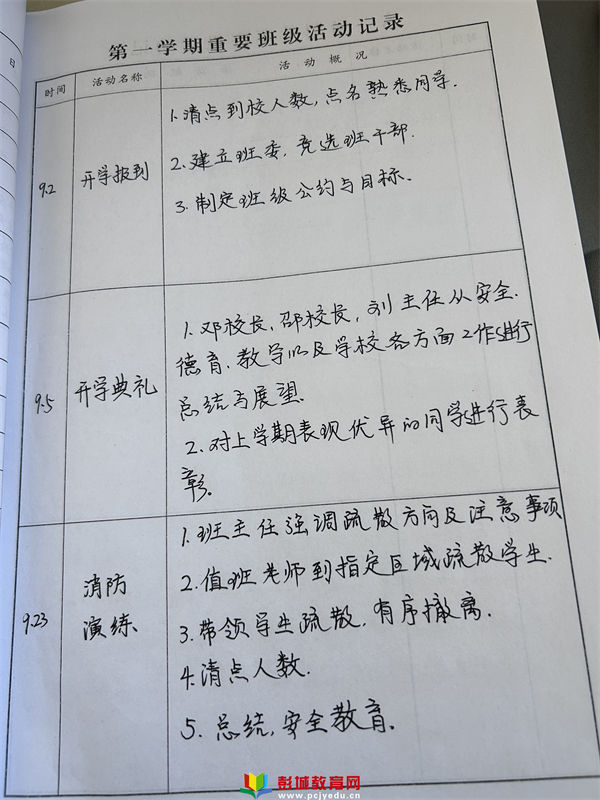 日
第一学期重要班级活动记录
时间 活动名称 活动概况
9.2 开学报到
1.清点到校人数,点名熟悉同学.
2.建立班委,竞选班干部.
3.制定班级公约与目标.
9.5 开学典礼
1.邓校长,邵校长,刘主任从安全.
德育.教学以及学校各方面工作进行
总结与展望.
2.对上学期表现优异的同学进行表
彰.
9.23 消防
演练
1.班主任强调疏散方向及注意事项
2.值班老师到指定区域疏散学生.
3.带领学生疏散,有序撤离.
4.清点人数.
5.总结,安全教育.
彭城教育网
www.pcjyedu.cn